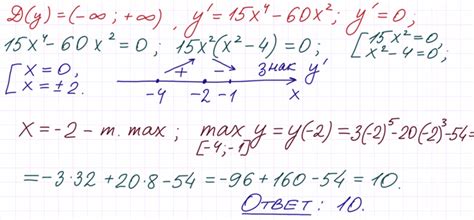 D(y)=(-∞; +∞), y'=15x⁴-60x²; y'=0;
15x⁴-60x²=0; 15x²(x²-4)=0; [15x²=0, x²-4=0;
[x=0, x=±2. + - знак y'
-4 -2 -1 x
x=-2 - т. max; max y = y(-2) = 3(-2)⁵-20(-2)³-54=
[-4;-1]
=-3·32+20·8-54=-96+160-54=10.
Ответ: 10.